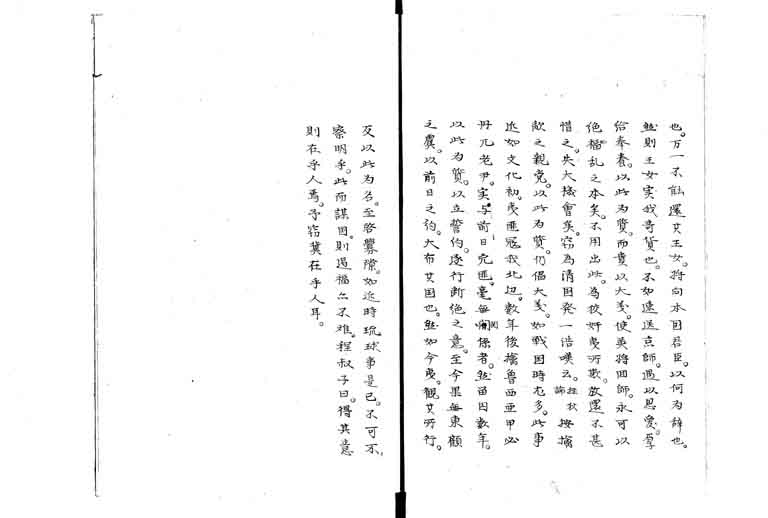 也。万一不能還其王女。将向本国君臣。以何為辞也。
然則王女実我奇貨也。不如速送京師。遇以恩愛。厚
給奉養。以此為質。而責以大義。使英将回師。永可以
絶禍乱之本矣。不用出此。為狡奸夷所欺。放還不甚
惜之。失大機會矣。窃為清国発一浩嘆云。按擒
敵之親寵。以此為質。仍倡大義。如戦国時尤多。此事
近如文化初。夷匪寇我北辺。数年後擒魯西亜甲必
丹兀老尹。実与前日兇匪。毫無関係者。然苗因数年。
以此為質。以立誓約。遂行断絶之意。至今果無東顧
之虞。以前日之約。大布其国也。然如今夷。観其所行。
反以此為名。至啓釁隙。如近時琉球事是已。不可不
察明乎。此而謀国。則遏福亦不难。程叔子曰。得其意
則在乎人焉。予窃冀在乎人耳。